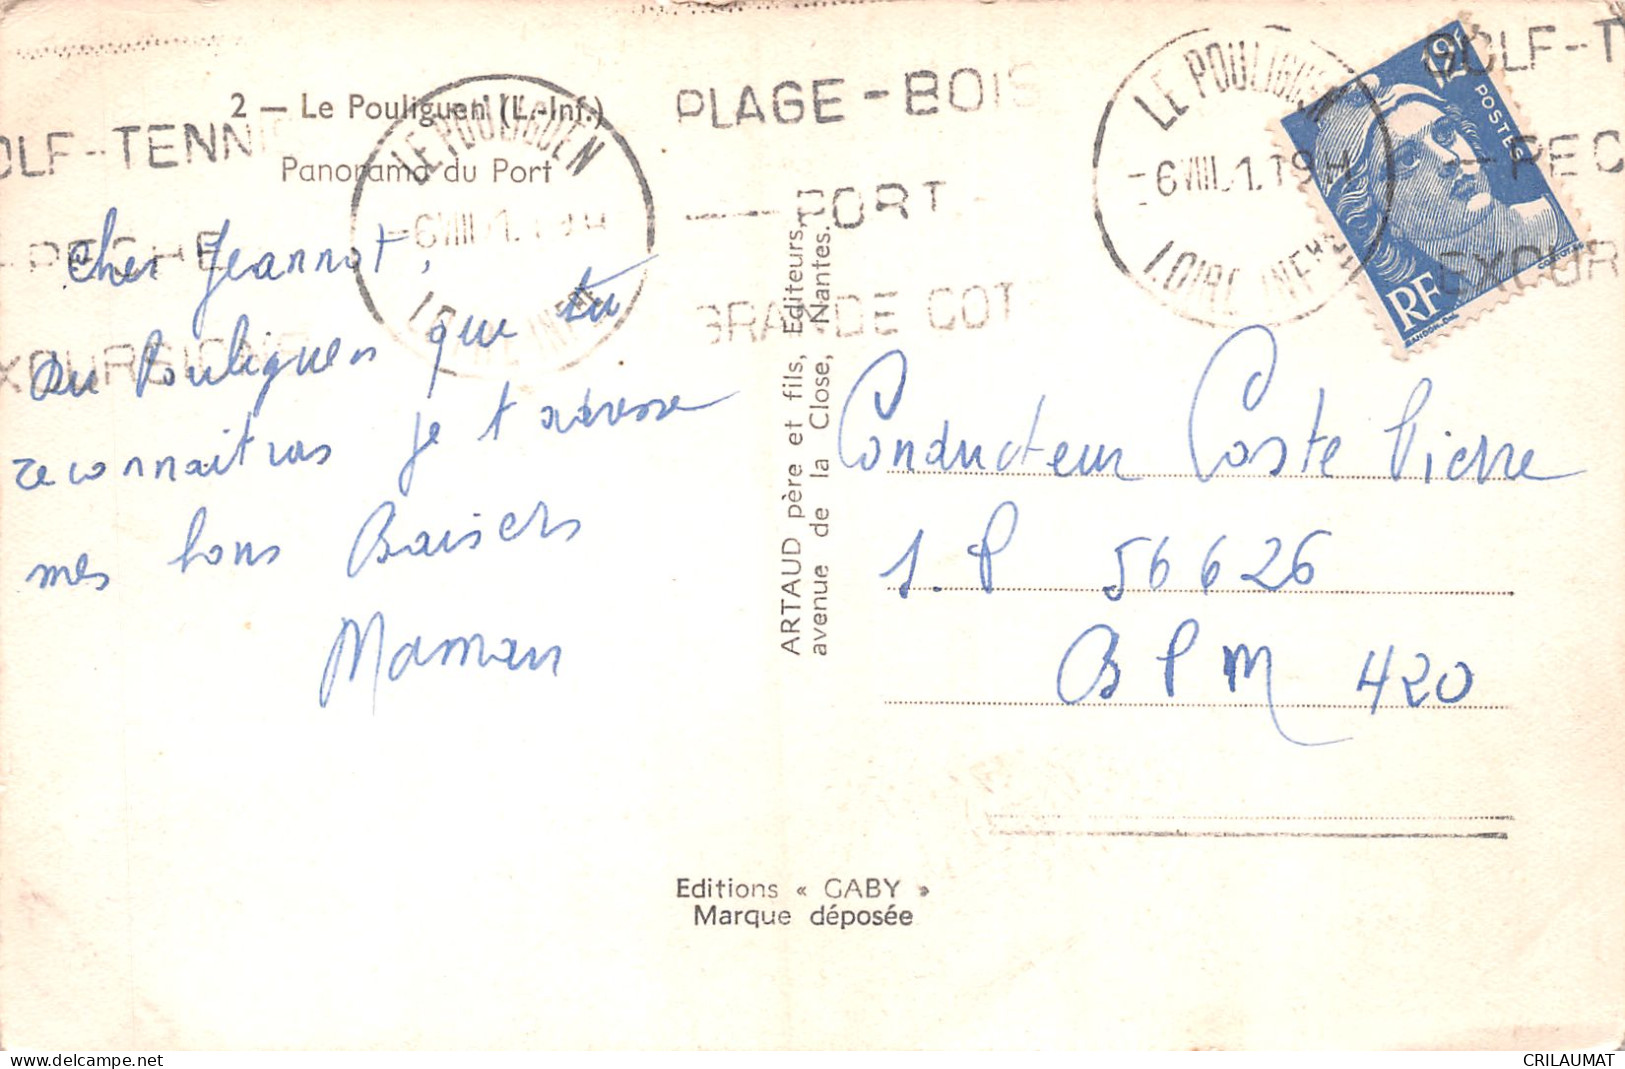 2 — Le Pouliguen (L.-Inf.)
Panorama du Port
OLF-TENNIS
PECHE
XCURSIONS
LE POULIGUEN
-6VIII. 1. 19H
LOIRE INFRE
PLAGE-BOIS
—PORT—
GRANDE COTE
LE POULIGUEN
-6VIII. 1. 19H
LOIRE INFRE
GOLF-T
—PEC
EXCUR
12F
POSTES
RF
GANDON-DEL
Cher Jeannot,
Du Pouliguen que tu
reconnaitras je t'adresse
mes bons Baisers
Maman
ARTAUD père et fils, Editeurs,
avenue de la Close, Nantes.
Conducteur Coste Pierre
S.P 56626
B P M 420
Editions « GABY »
Marque déposée
delcampe.net
CRILAUMAT